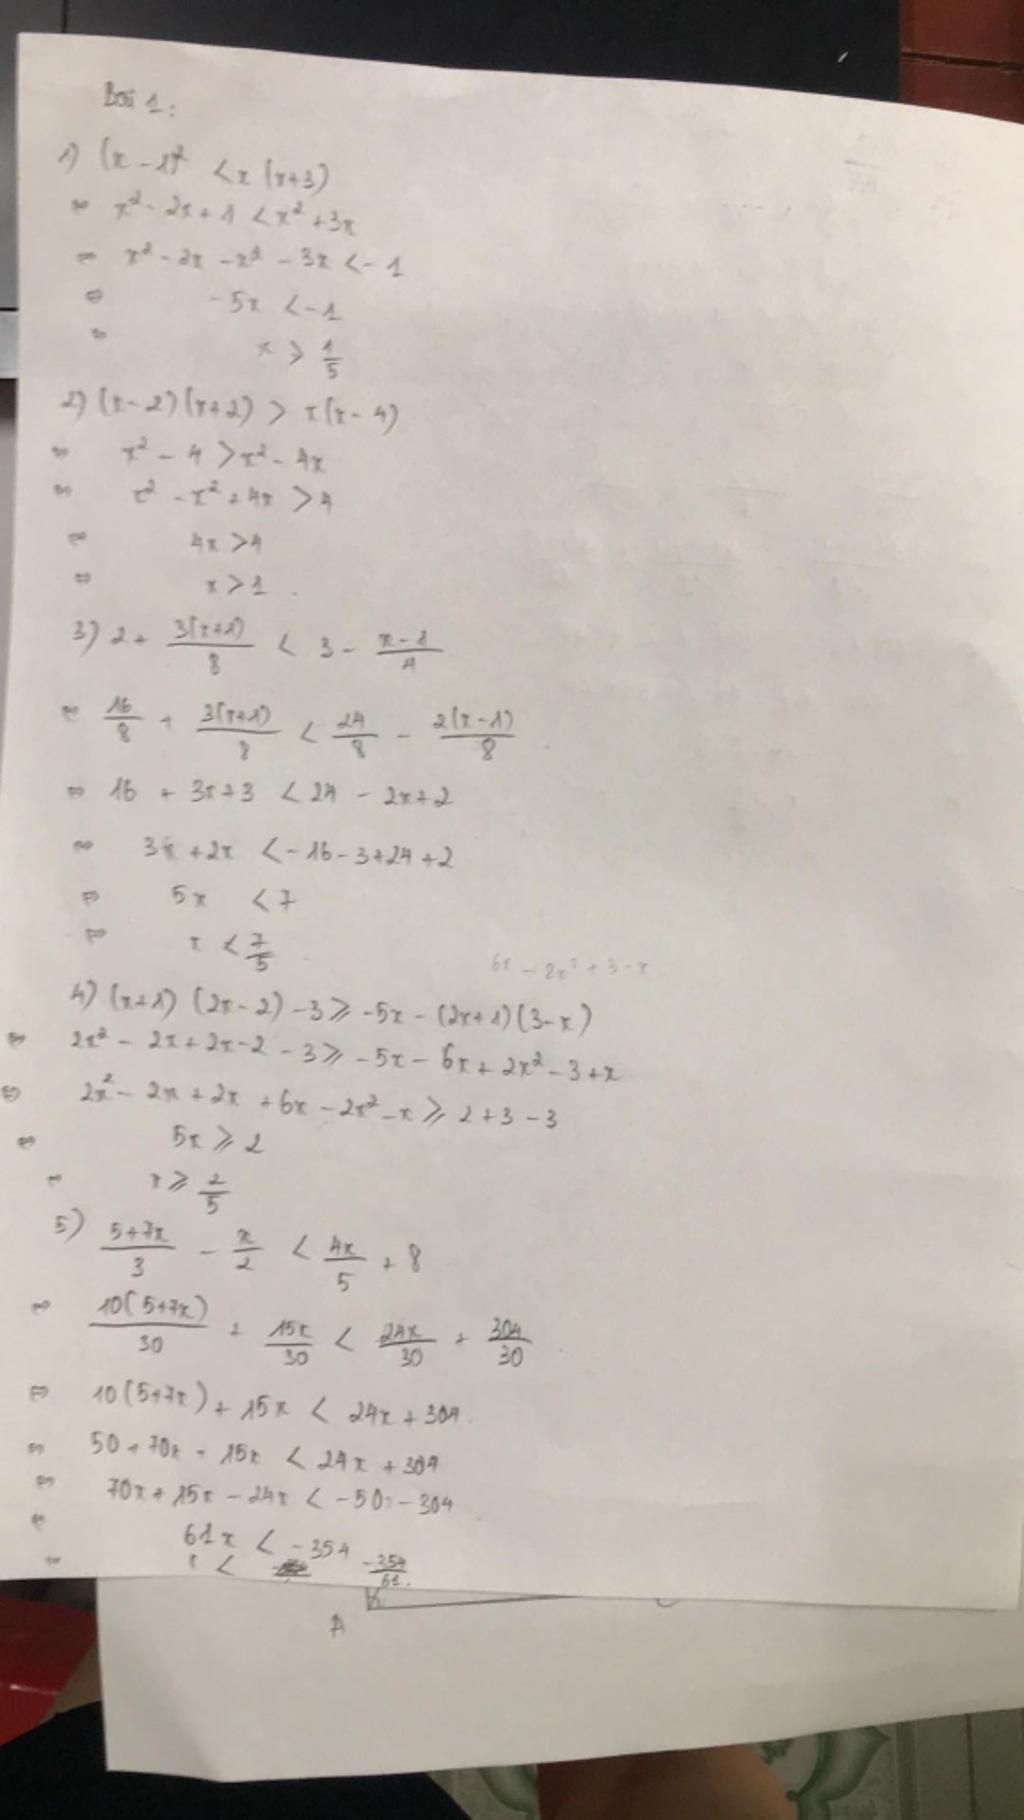 Bài 1:
1) (x - 1)² < x(x+3)
⇔ x² - 2x + 1 < x² + 3x
⇔ x² - 2x - x² - 3x < -1
⇔ -5x < -1
⇔ x > 1/5
2) (x-2)(x+2) > x(x-4)
⇔ x² - 4 > x² - 4x
⇔ x² - x² + 4x > 4
⇔ 4x > 4
⇔ x > 1.
3) 2 + 3(x+1)/8 < 3 - x-1/4
⇔ 16/8 + 3(x+1)/8 < 24/8 - 2(x-1)/8
⇔ 16 + 3x+3 < 24 - 2x+2
⇔ 3x + 2x < -16-3+24+2
⇔ 5x < 7
⇔ x < 7/5
6x - 2x² + 3 - x
4) (x+1)(2x-2) - 3 ≥ -5x - (2x+1)(3-x)
⇔ 2x² - 2x + 2x - 2 - 3 ≥ -5x - 6x + 2x² - 3 + x
⇔ 2x² - 2x + 2x + 6x - 2x² - x ≥ 2 + 3 - 3
⇔ 5x ≥ 2
⇔ x ≥ 2/5
5) 5+7x/3 - x/2 < 4x/5 + 8
⇔ 10(5+7x)/30 + 15x/30 < 24x/30 + 304/30
⇔ 10(5+7x) + 15x < 24x + 304.
⇔ 50 + 70x + 15x < 24x + 304
⇔ 70x + 15x - 24x < -50 - 304
⇔ 61x < -354
⇔ x < -354/61.
A